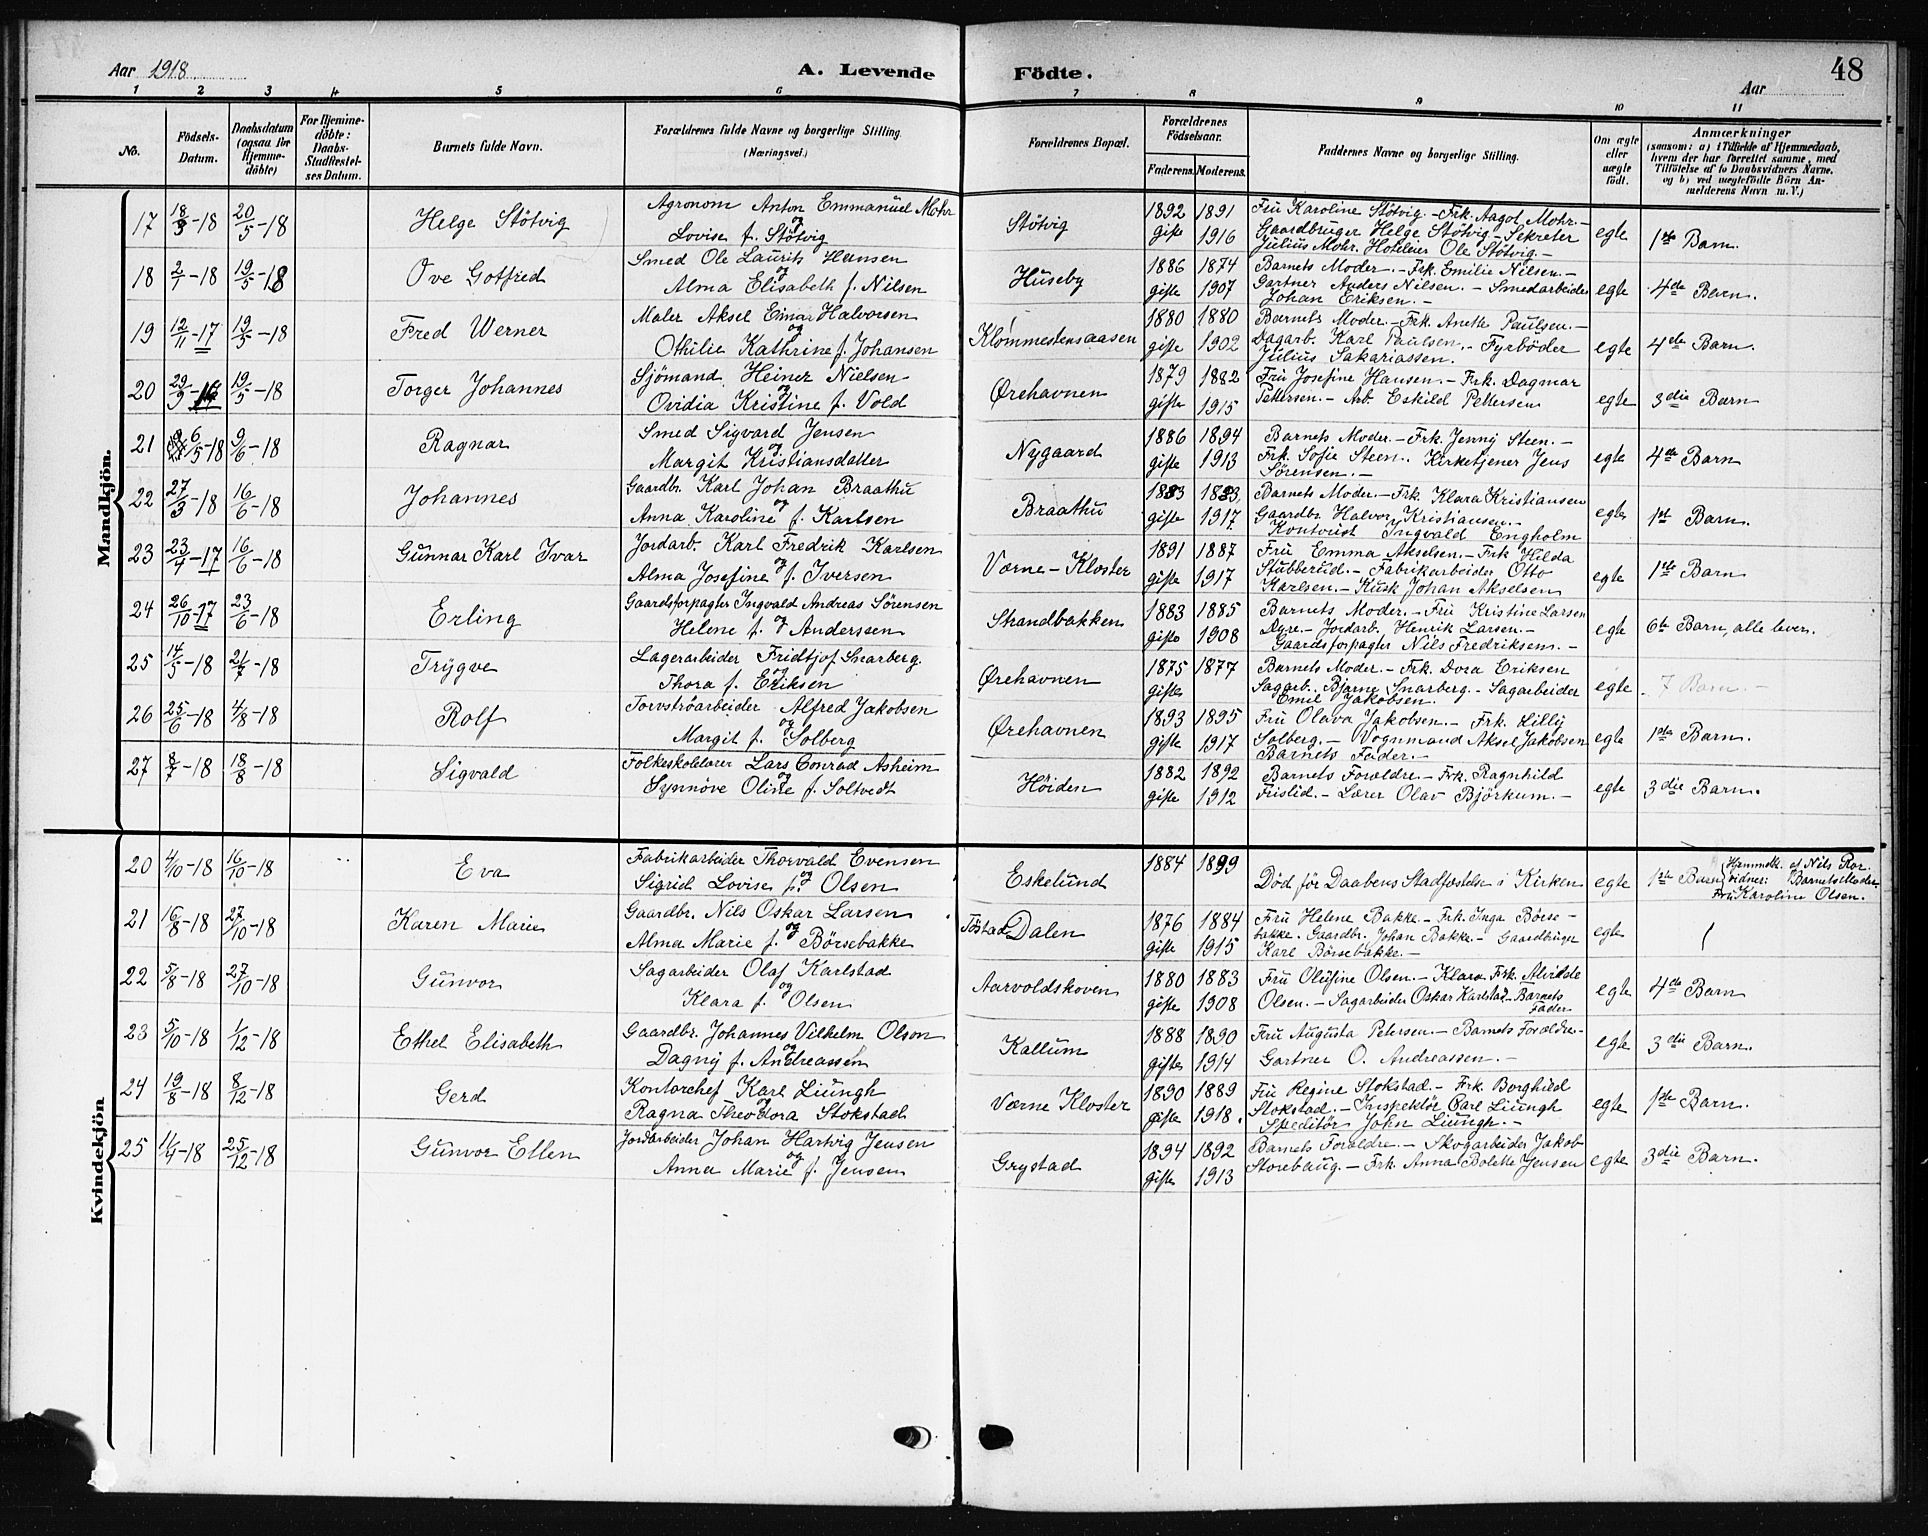 Aar 1918
A. Levende Födte.
Aar
48
1 2 3 4 5 6 7 8 9 10 11
No.
Födsels-Datum.
Daabsdatum (ogsaa for Hjemme-døbte)
For Hjemme-döbte: Daabs-Stadfæstel-ses Datum.
Barnets fulde Navn.
Forældrenes fulde Navne og borgerlige Stilling. (Næringsvei.)
Forældrenes Bopæl.
Forældrenes Födselsaar.
Faderens. Moderens.
Faddernes Navne og borgerlige Stilling.
Om ægte eller uægte født.
Anmærkninger
(saasom: a) i Tilfælde af Hjemmedaab,
hvem der har forrettet samme, med
Tilføielse af to Daabsvidners Navne.
og b) ved uægtefödte Börn An-
melderens Navn m. V.)
Mandkjön.
17 18/3-18 20/5-18 Helge Stötvig Agronom Anton Emmanuel Mohr og Lovise f. Stötvig Stötvig 1892 1891 gifte 1916 Fru Karoline Stötvig.- Frk. Aagot Mohr.- Gaardbruger Helge Stötvig - Sekretær Julius Mohr. Hoteleier Ole Stötvig.- egte 1ste Barn.
18 2/1-18 19/5-18 Ove Gotfred Smed Ole Laurits Hansen og Alma Elisabeth f. Nilsen Huseby 1886 1874 gifte 1907 Barnets Moder.- Frk. Emilie Nilsen.- Gartner Anders Nilsen.- Smedarbeider Johan Eriksen.- egte 4de Barn.
19 12/11-17 19/5-18 Fred Werner Maler Aksel Einar Halvorsen og Othilie Kathrine f. Johansen Klommestensaasen 1880 1880 gifte 1902 Barnets Moder.- Frk. Anette Paulsen.- Dagarb. Karl Paulsen.- Fyrböder Julius Sakariassen. egte 4de Barn.
20 29/9- 19/5-18 Torger Johannes Sjömand Heiner Nielsen og Ovidia Kristine f. Vold Ørehavnen 1879 1882 gifte 1915 Fru Josefine Hansen.- Frk. Dagmar Pettersen.- Arb. Eskild Pettersen egte 3die Barn
21 6/5-18 9/6-18 Ragnar Smed Sigvard Jensen og Margit Kristiansdatter Nygaard 1886 1894 gifte 1913 Barnets Moder.- Frk. Jenny Steen.- Frk. Sofie Steen. Kirketjener Jens Sörensen.- egte 4de Barn
22 27/3-18 16/6-18 Johannes Gaardbr. Karl Johan Braathu og Anna Karoline f. Karlsen Braathu 1883 1883 gifte 1917. Barnets Moder.- Frk. Klara Kristiansen Gaardbr. Halvor Kristiansen.- Kontorist Ingvald Engholm egte 1st Barn.
23 23/4-17 16/6-18 Gunnar Karl Ivar Jordarb. Karl Fredrik Karlsen og Alma Josefine f. Iversen Værne-Kloster 1891 1887 gifte 1917 Fru Emma Akselsen.- Frk Hilda Stubberud.- Fabrikarbeider Otto Karlsen.- Kusk Johan Akselsen egte 1ste Barn
24 26/10-17 23/6-18 Erling Gaardsforpagter Ingvald Andreas Sörensen og Helene f. Anderssen Strandbakken 1883 1885 gifte 1908 Barnets Moder.- Fru Kristine Larsen Dyre.- Jordarb. Henrik Larsen.- Gaardsforpagter Nils Fredriksen.- egte 6te Barn, alle lever.
25 14/5-18 21/7-18 Trygve Lagerarbeider Fridtjof Snarberg. og Thora f. Eriksen Ørehavnen 1875 1877 gifte Barnets Moder.- Frk. Dora Eriksen Sagarb. Bjarne Snarberg.- Sagarbeider Emil Jakobsen. egte 7 Barn.-
26 25/6-18 4/8-18 Rolf Torvströarbeider Alfred Jakobsen og Margit f. Solberg Ørehavnen 1893 1895 gifte 1917 Fru Olava Jakobsen.- Frk. Hilly Solberg.- Vognmand Aksel Jakobsen Barnets Fader.- egte 1ste Barn.
27 8/7-18 18/8-18 Sigvald Folkeskolelærer Lars Conrad Asheim og Synnöve Oline f. Soltvedt Höiden 1882 1892 gifte 1912 Barnets Forældre.- Frk. Ragnhild Frislid.- Lærer Olav Björkum.- egte 3die Barn.
Kvindekjön
20 4/10-18 16/10-18 Eva Fabrikarbeider Thorvald Evensen og Sigrid Lovise f. Olsen Eskelund 1884 1899 Död för Daabens Stadfæstelse i Kirken egte 1ste Barn Hjemmedt. af Nils Ror. vidner: Barnets Moder. Fru Karoline Olsen.
21 16/8-18 27/10-18 Karen Marie Gaardbr. Nils Oskar Larsen og Alma Marie f. Börsebakke Dalen 1876 1884 gifte 1915 Fru Helene Bakke.- Frk. Inga Börse-bakke. Gaardbr. Johan Bakke.- Gaardbruger Karl Börsebakke.- egte
22 5/8-18 27/10-18 Gunvor Sagarbeider Olaf Karlstad og Klara f. Olsen Aarvoldskoven 1880 1883 gifte 1908 Fru Olufine Olsen.- Klara Frk. Alvilde Olsen.- Sagarbeider Oskar Karlstad- Barnets Fader egte 4de Barn
23 5/10-18 1/12-18 Ethel Elisabeth Gaardbr. Johannes Vilhelm Olson og Dagny f. Andreassen Kallum 1888 1890 giftes 1914 Fru Augusta Petersen.- Barnets Forældre.- Gartner O. Andreassen.- egte 3die Barn.
24 19/8-18 8/12-18 Gerd Kontorchef Karl Liungh og Ragna Theodora Stokstad Værne Kloster 1890 1889 gifte 1918. Fru Regine Stokstad.- Frk. Borghild Stokstad.- Inspektör Carl Liungh Speditör John Liungh.- egte 1ste Barn.
25 11/4-18 25/12-18 Gunvor Ellen Jordarbeider Johan Hartvig Jensen og Anna Marie f. Jensen Grystad 1894 1892 gifte 1913 Barnets Forældre.- Skogarbeider Jakob Storebaug.- Frk. Anna Bolette Jensen egte 3die Barn.